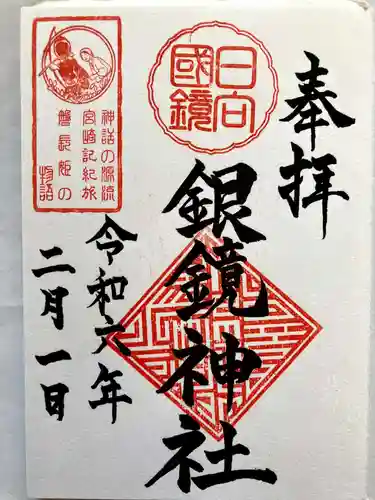 奉拝
日向
國鏡
銀鏡神社
神話の源流
宮崎記紀旅
磐長姫の
物語
令和六年
二月一日